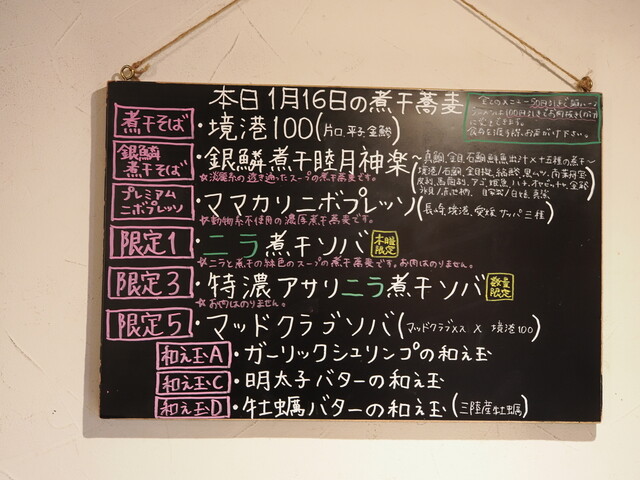 本日1月16日の煮干蕎麦
全てのメニュー50円引きで
100円引きでお肉抜き
に できます。
食券を渡す時、お声がけ下さい。
煮干そば・境港100(片口、平子、金鯵)
銀鱗煮干そば・銀鱗煮干睦月神楽〜真鯛、金目、石鯛、鮮魚出汁×十五種の煮干〜
☆淡麗系の透き通ったスープの煮干蕎麦です。
境港/石鯛、金目
プレミアムニボプレッソ・ママカリニボプレッソ(長崎、境港、愛媛 サッパ三種)
☆動物系不使用の濃厚煮干蕎麦です。
限定1・ニラ煮干ソバ 本日限定
☆ニラと煮干の緑色のスープの煮干蕎麦です。お肉はのりません。
限定3・特濃アサリニラ煮干ソバ 数量限定
☆お肉はのりません。
限定5・マッドクラブソバ(マッドクラブメス×境港100)
和え玉A・ガーリックシュリンプの和え玉
和え玉C・明太子バターの和え玉
和え玉D・牡蠣バターの和え玉(三陸産牡蠣)